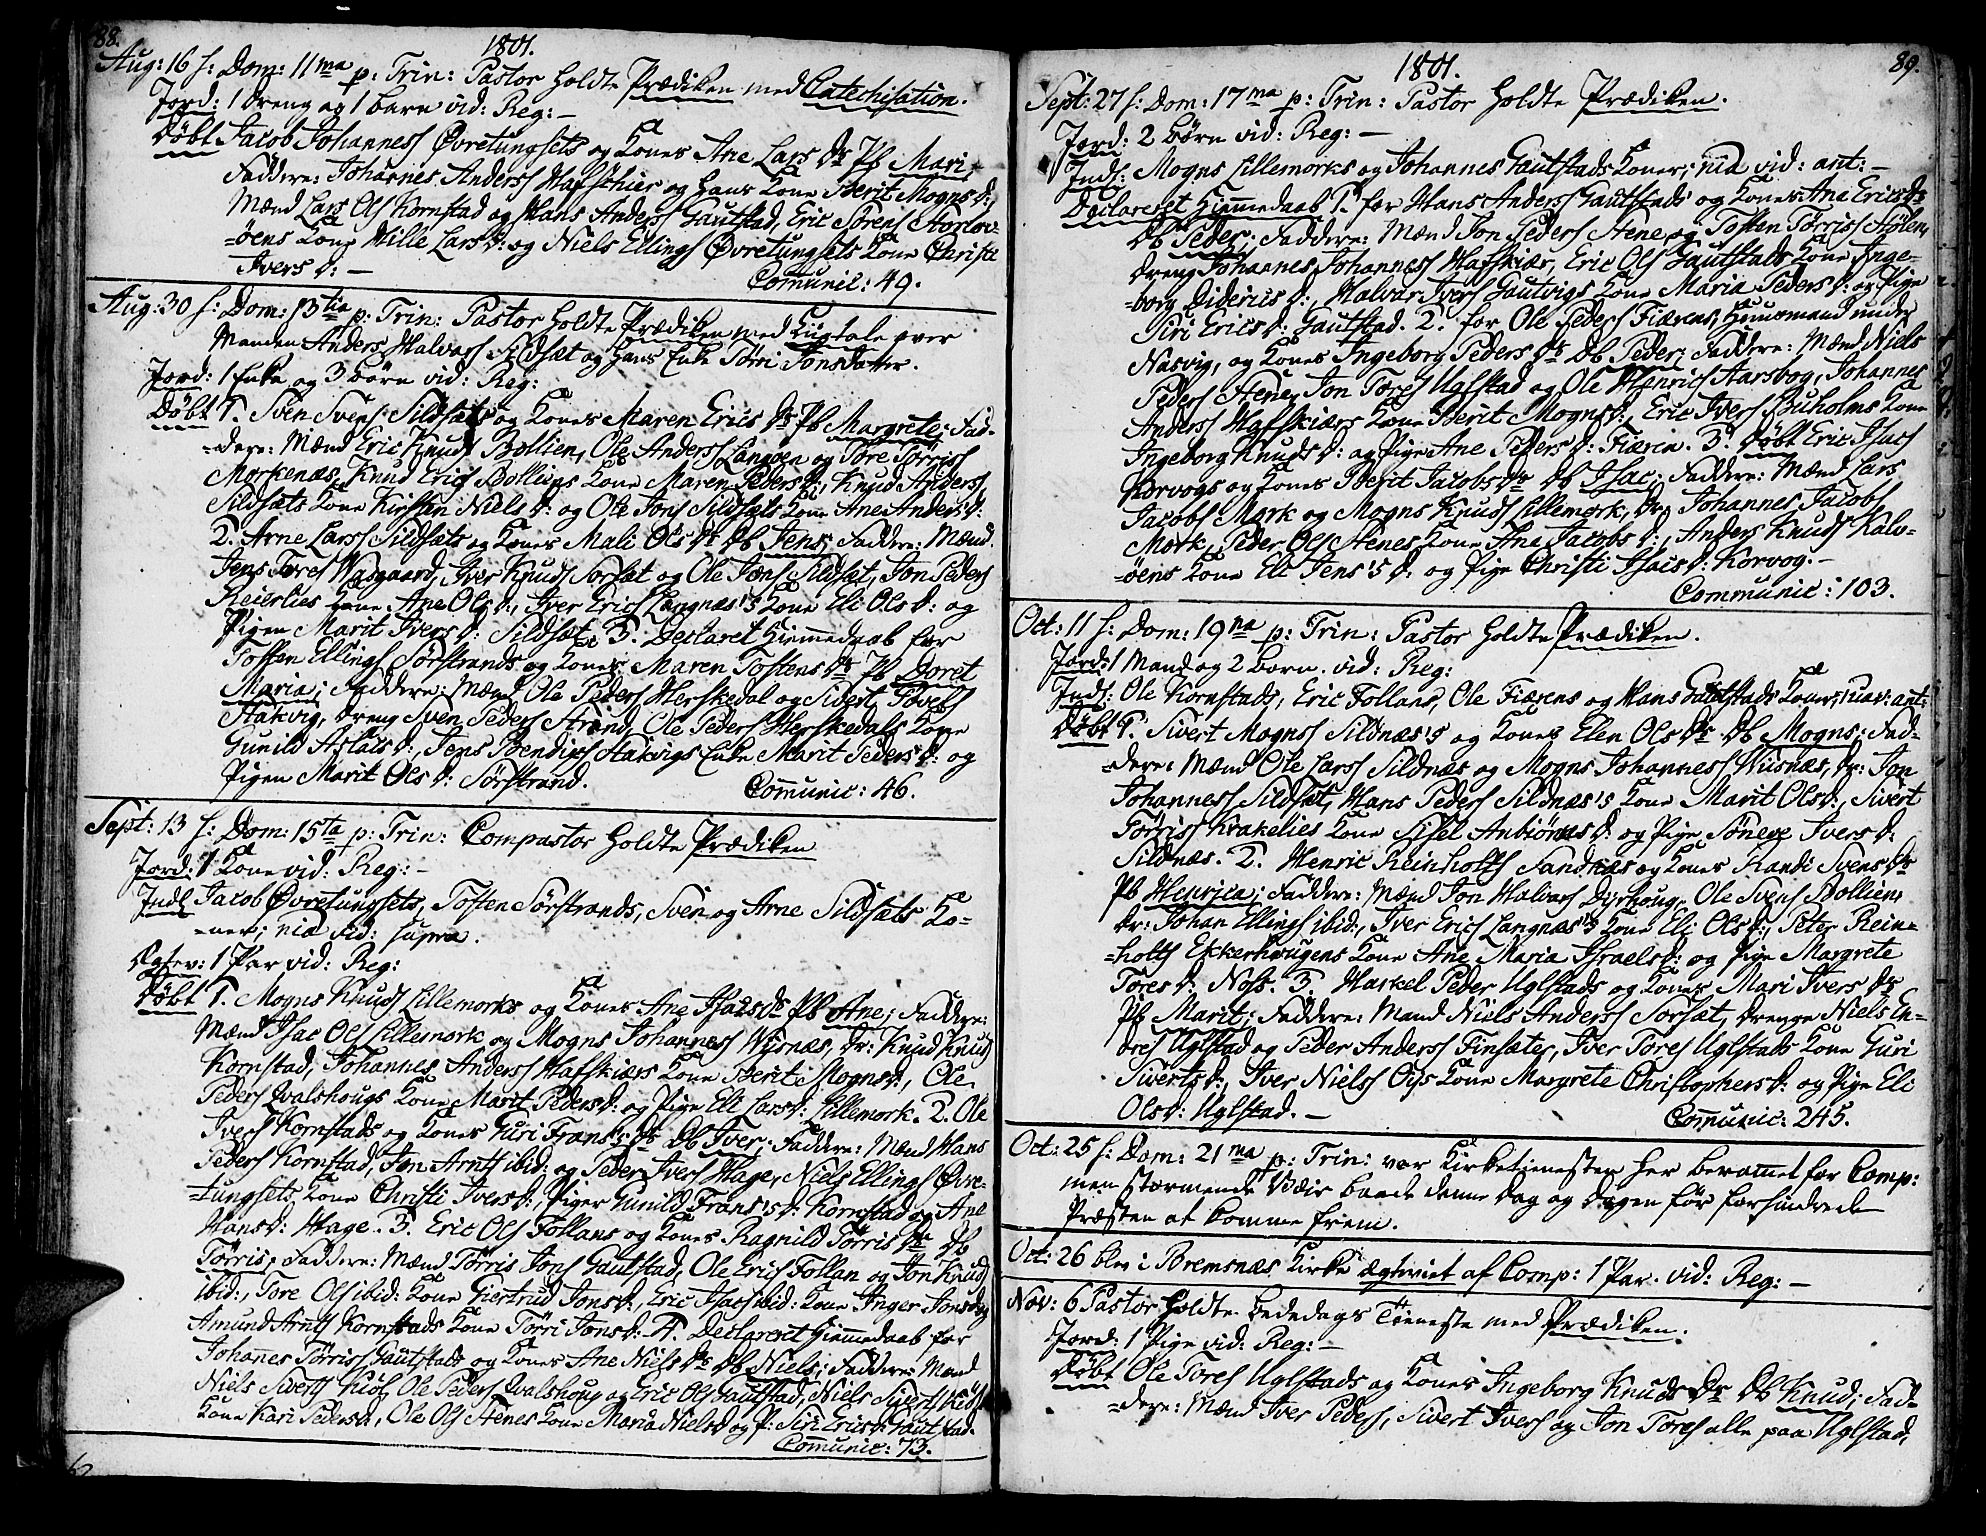 88.
1801.
Aug: 16 f: Dom: 11ma p: Trin: Pastor holdte Prædiken med Catechisation.
Jord: 1 dreng og 1 barn vid: Reg: —
Døbt Jacob Johanness Øvretungsets og Kones Ane Lars Dr Pb Mari,
Faddere: Johannes Anderss Hafskier og hans Kone Berit Mogns d:,
Mænd Lars Ols Kornstad og Hans Anderss Gautstad, Eric Sørens
-øens Kone Lars d: og Niels Ellings Øvretungsets Kone Christi
Ivers d: —
Comunic: 49.
Aug: 30 f: Dom: 13tia p: Trin: Pastor holdte Prædiken med Liigtale over
Manden Anders Halvors Sildset og hans Enke Tørri Jonsdatter.
Jord: 1 Enke og 3 børn vid: Reg:
Døbt 1. Sven Svens Sildsets og Kones Maren Erics Dr Pb Margrete; Fad-
dere: Mænd Eric Knuds Bollien, Ole Anderss Langøen og Tore Tørriss
Morkenæs, Knud Erics Bolliens Kone Maren Peders D:, Knud Anderss
Sildsæts Kone Kirsten Niels d: og Ole Jons Sildsæts Kone Ane Anders d:
2. Arne Larss Sildsæts og Kones Mali Ols Dr Db Jens; Faddere: Mænd
Jens Tores Wasgaard, Iver Knuds Sorsæt og Ole Jens Sildsæt, Jon Peders
Reierlies Kone Ane Ols d:, Iver Erics Langnæs's Kone Eli Ols d: og
Pigen Marit Ivers d: Sildsæt. 3. Declaret hiemmedaab for
Tosten Ellings Sørstrands og Kones Maren Tostens Dr Pb Doret
Maria; Faddere: Mænd Ole Peders Herskedal og Sivert
Stakvig, dreng Sven Peders Strand, Ole Peders Herskedals Kone
Gunild Aslacs d:, Jens Bendixs Stakvigs Enke Marit Peders d: og
Pigen Marit Ols d: Sørstrand.
Comunic: 46.
Sept: 13 f: Dom: 15ta p: Trin: Compastor holdte Prædiken
Jord: 1 Kone vid: Reg: —
Indl Jacob Øvretungsets, Tosten Sørstrands, Sven og Arne Sildsæts Ko-
ner; vid: supra.
1 Par vid: Reg:
Døbt 1. Mogns Knuds Lillemorks og Kones Ane Isacs Dr Pb Ane; Faddere:
Mænd Isac Ols Lillemork og Mogns Johanness Wiisnæs, dr: Knud Knuds
Kornstad, Johannes Anderss Hafskiærs Kone Berit Mogns d:, Ole
Peders Qvalshougs Kone Marit Peders d: og Pige Eli Lars d: Lillemork. 2. Ole
Ivers Kornstads og Kones Guri Frans's Dr Db Iver; Faddere: Mænd Hans
Peders Kornstad, Jon Arnts ibid: og Peder Ivers Hage, Niels Ellings Øvre-
tungsets Kone Christi Ivers d:, Piger Gunild Frans's d: Kornstad og Ane
Hans d: Hage. 3. Eric Ols Follans og Kones Ragnild Tørris Dr Db
Tørris; Faddere: Mænd Tørris Jons Gautstad, Ole Erics Follan og Jon Knuds
ibid:, Tore Ols ibid: Kone Giertrud Jons d:, Eric Isacs ibid: Kone Inger Jons d: og
Amund Arnts Kornstads Kone Tørri Jons d: 4. Declareret hiemmedaab for
Johannes Tørriss Gautstads og Kones Ane Niels Dr Db Niels; Faddere: Mænd
Niels Siverts Kiøl, Ole Peders Qvalshoug og Eric Ols Gautstad, Niels Siverts Kiøls
Kone Kari Peders d:, Ole Ols Stenes Kone Maria Niels d: og P: Siri Erics d: Gautstad.
Comunic: 73.
1801.
89.
Sept: 27 f: Dom: 17ma p: Trin: Pastor holdte Prædiken.
Jord: 2 børn vid: Reg: —
Indl: Mogns Lillemorks og Johannes Gautstads Koner; vid: ant: —
Declareret hiemmedaab 1. for Hans Anderss Gautstads og Kones Ane Erics Dr
Db Peder; Faddere: Mænd Jon Peders Stene og Tosten Tørriss
dreng Johannes Johanness Hafskiær, Eric Ols Gautstads Kone Inge-
borg Dideric's d:, Halvor Ivers Gautvigs Kone Maria Peders d: og Pige
Siri Erics d: Gautstad. 2. for Ole Peders Fiærens, Huusmand under
Nasvig, og Kones Ingeborg Peders Dr Db Peder; Faddere: Mænd Niels
Peders Stene, Jon Tores Uglstad og Ole Henrics Aarsbog, Johannes
Anderss Hafskiærs Kone Berit Mogns d:, Eric Ivers Buholms Kone
Ingeborg Knuds d: og Pige Ane Peders d: Fiærin. 3. Døbt Eric Isacs
Korvogs og Kones Berit Jacobs Dr Db Isac; Faddere: Mænd Lars
Jacobs Mork og Mogns Knuds Lillemork, Dr: Johannes Jacobs
Mork, Peder Ols Stenes Kone Ane Jacobs d:, Anders Knuds Kalv-
øens Kone Eli Jens's d: og Pige Christi Isacs d: Korvog. —
Communic: 103.
Oct: 11 f: Dom: 19na p: Trin: Pastor holdte Prædiken.
Jord: 1 Mand og 2 børn. vid: Reg:
Indl: Ole Kornstads, Eric Follans, Ole Fiærens og Hans Gautstads Koner, ant:
Døbt 1. Sivert Mogns Sildnæs's og Kones Elen Ols Dr Db Mogns; Fad-
dere: Mænd Ole Larss Sildnæs og Mogns Johanness Wiisnæs, dr: Jon
Johanness Sildset, Hans Peders Sildnæs's Kone Marit Ols d:, Sivert
Tørriss Krakelies Kone Sisel Anbiørns d: og Pige Søneve Ivers d:
Sildnæs. 2. Henric Reinholts Sandnæs og Kones Randi Svens Dr
Pb Henrica; Faddere: Mænd Jon Halvors Dyrhoug, Ole Svens Bollien,
dr: Johan Ellings ibid:, Iver Erics Langnæs's Kone Eli Ols d:, Peter Rein-
holts Ekkerhougens Kone Ane Maria Israels d: og Pige Margrete
Tores d: Noss. 3. Harkel Peder Uglstads og Kones Mari Ivers Dr
Pb Marit; Faddere: Mand Niels Anderss Sorsæt, drenge Niels En-
dres Uglstad og Peder Anderss Finsæter, Iver Tores Uglstads Kone Guri
Siverts d:, Iver Nielss Øys Kone Margrete Christophers d: og Pige Eli
Ols d: Uglstad. —
Comunic: 245.
Oct: 25 f: Dom: 21ma p: Trin: var Kirketienesten her berammet for Comp:
men stormende Veir baade denne dag og dagen før forhindrede
Præsten at komme frem.
Oct: 26 blev i Bremsnæs Kirke ægteviet af Comp: 1 Par. vid: Reg: —
Nov: 6 Pastor holdte bededags Tieneste med Prædiken.
Jord: 1 Pige vid: Reg: —
Døbt Ole Tores Uglstads og Kones Ingeborg Knuds Dr Db Knud; Fad-
dere: Mænd Iver Peders, Sivert Ivers og Jon Tores alle paa Uglstad,